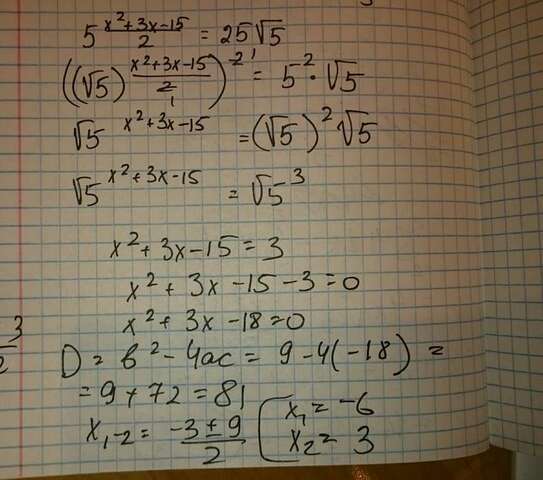 5^((x²+3x-15)/2) = 25√5
((√5)^((x²+3x-15)/2))^2 = 5²·√5
√5^(x²+3x-15) = (√5)²√5
√5^(x²+3x-15) = √5³
x²+3x-15=3
x²+3x-15-3=0
x²+3x-18=0
D=в²-4ac=9-4(-18)=
=9+72=81
x₁,₋₂=(-3±9)/2 [x₁=-6
x₂=3
3/2